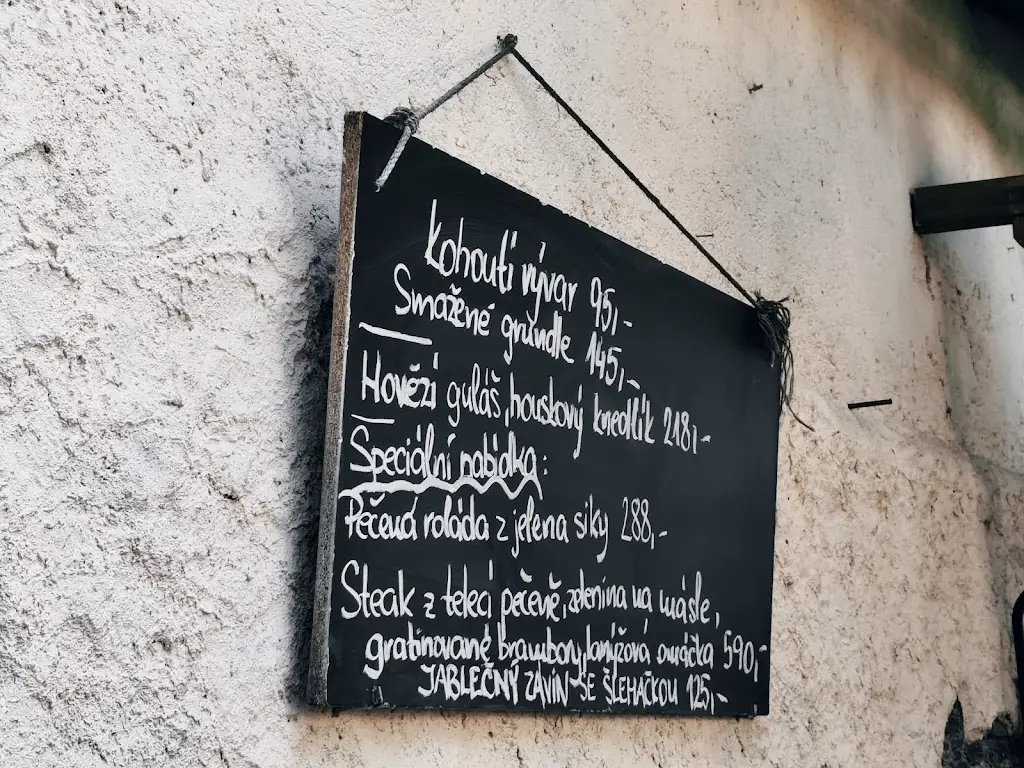 Kohoutí vývar 95,-
Smažené grundle 145,-
Hovězí guláš, houskový knedlík 218,-
Speciální nabídka:
Pečená roláda z jelena siky 288,-
Steak z telecí pečeně, zelenina na másle,
gratinované brambory, lanýžová omáčka 590,-
JABLEČNÝ ZÁVIN SE ŠLEHAČKOU 125,-